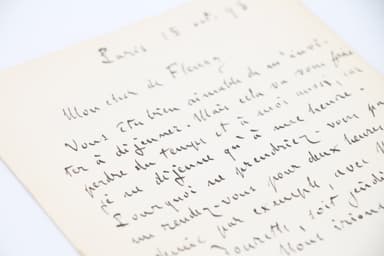 Paris 15 oct. 98
Mon cher de Fleury
Vous êtes bien aimable de m'invi-
ter à déjeuner. Mais cela va vous faire
perdre du temps et à moi aussi, car
je ne déjeune qu'à une heure.
Pourquoi ne prendriez-vous pas
un rendez-vous pour deux heures
par exemple, avec M
Tourette, soit jeudi
Nous irions